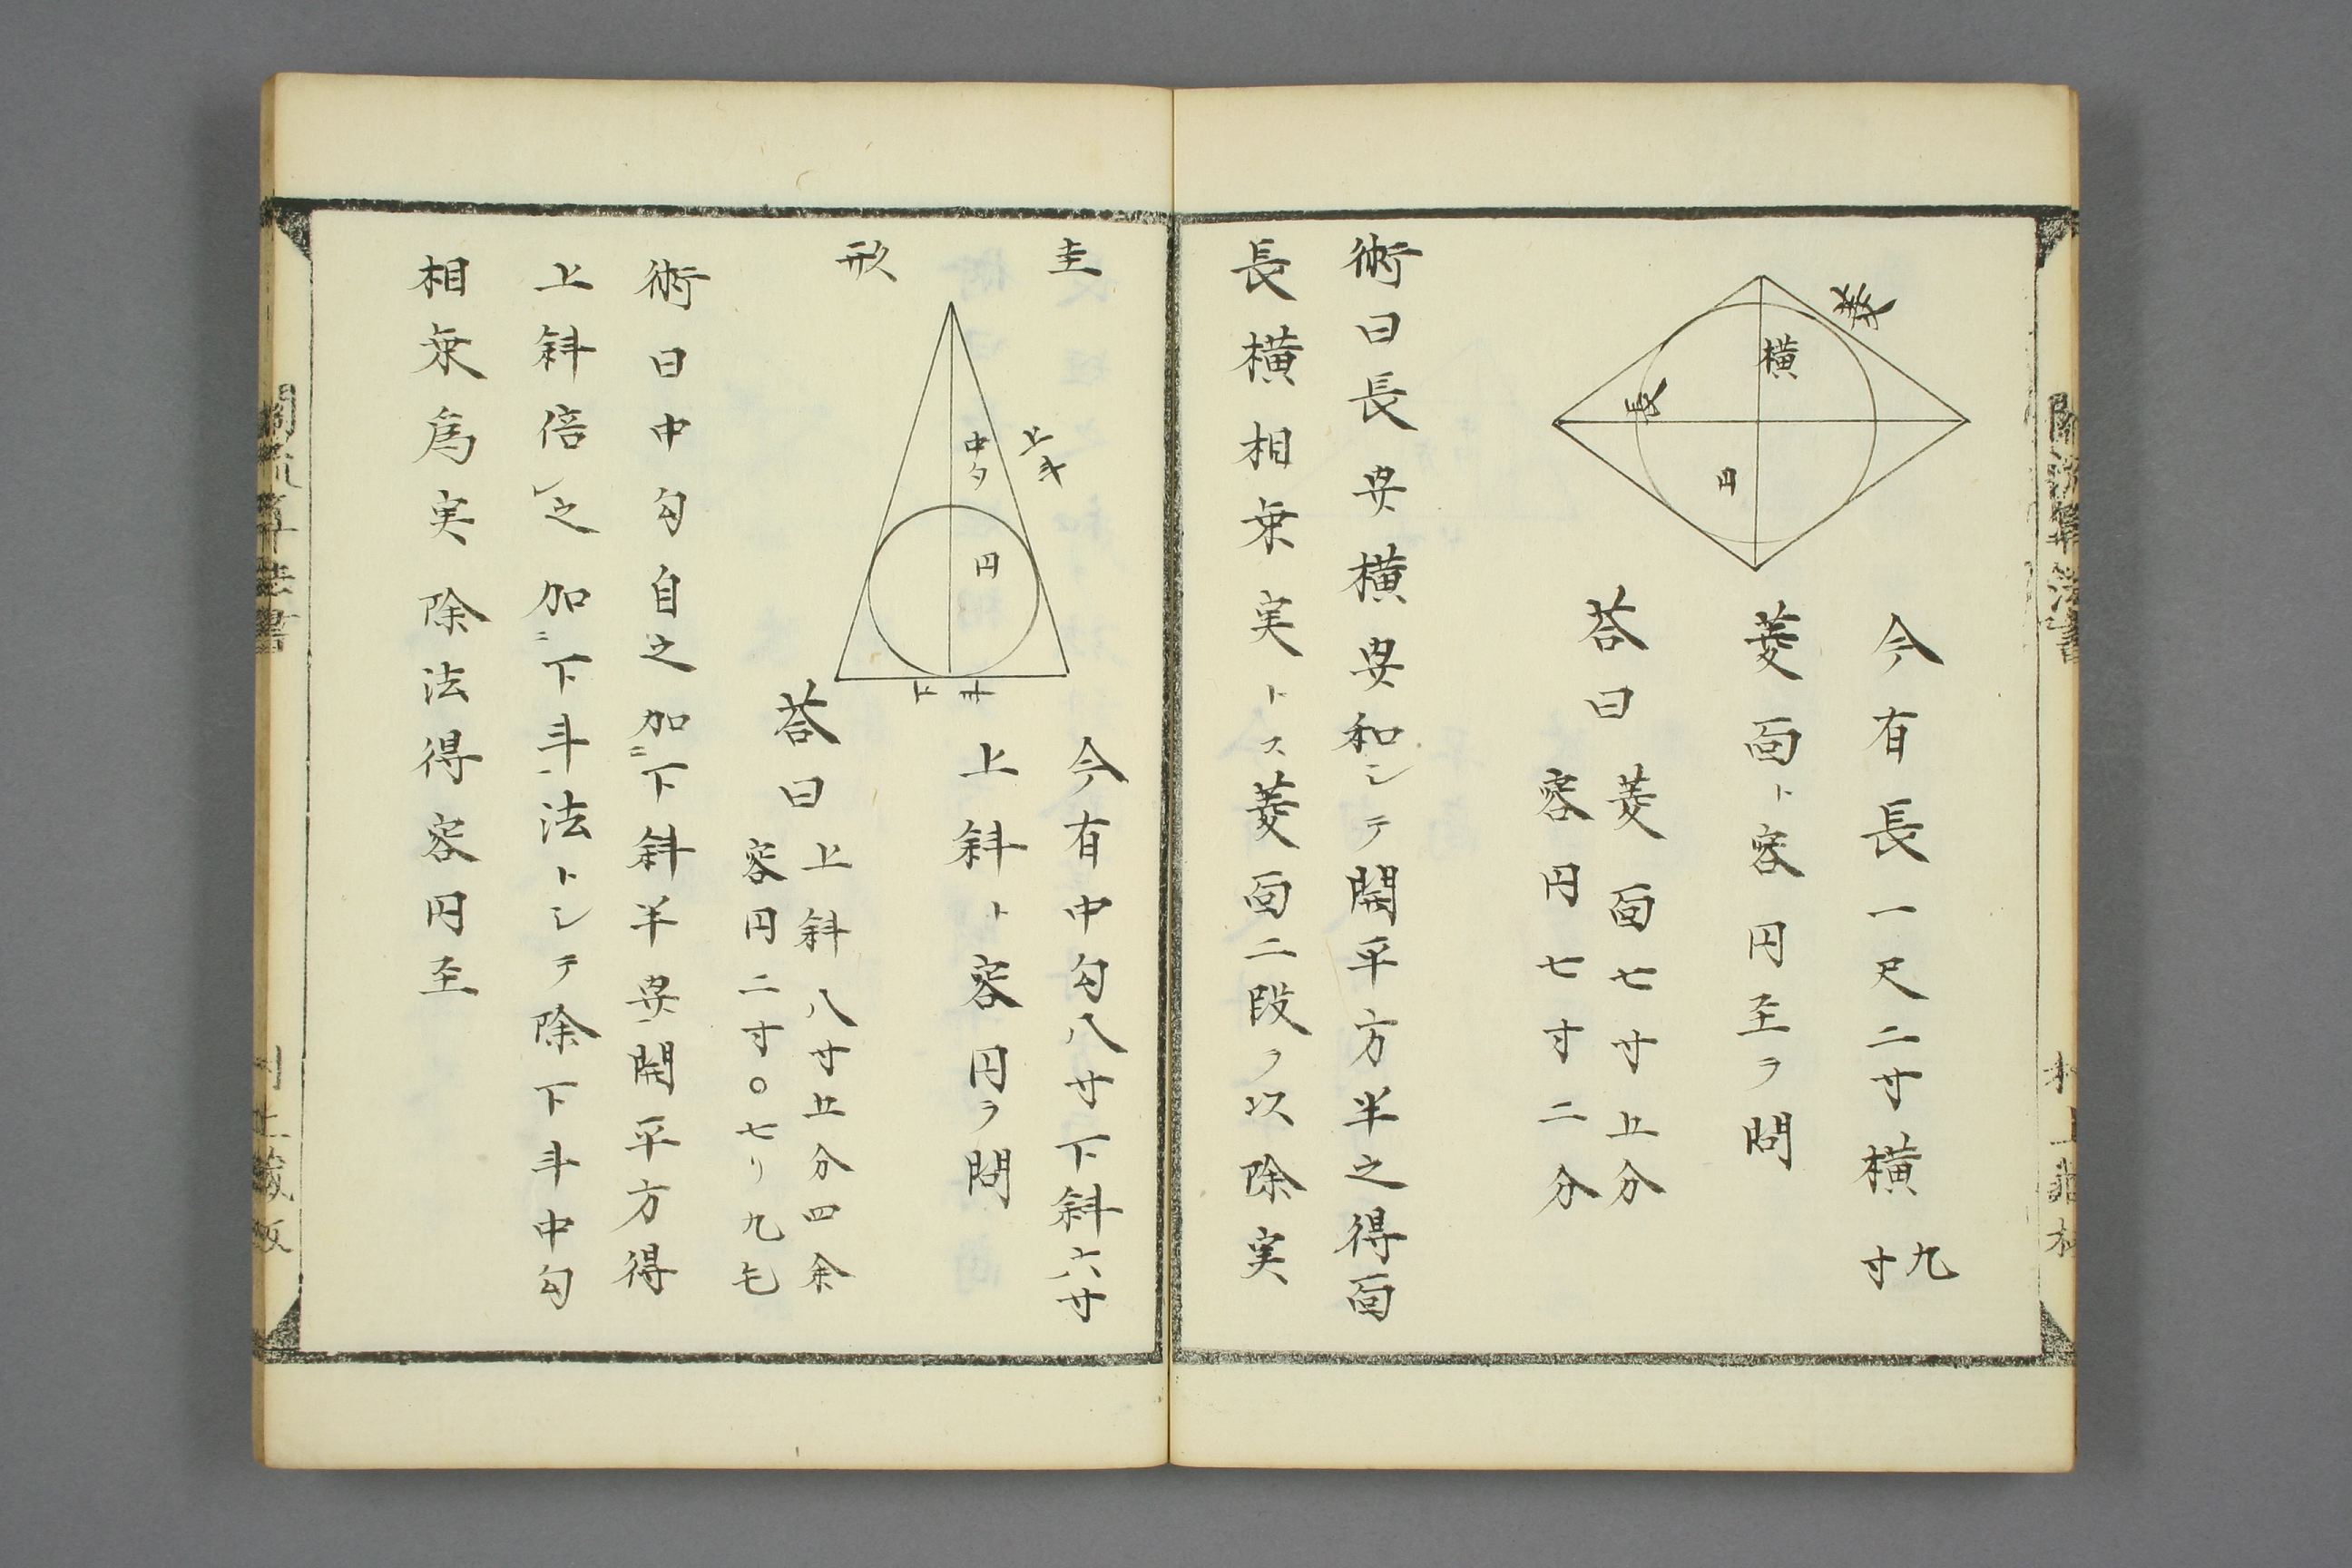 菱
横
長
円
今有長一尺二寸横九寸
菱面ト容円至ヲ問
答曰菱面七寸五分
容円七寸二分
術曰長巾横巾和シテ開平方半之得面
長横相乗実トス菱面二段ヲ以除実
圭
形
中勾
上斗
円
下斗
今有中勾八寸下斜六寸
上斜ト容円ヲ問
答曰上斜八寸五分四余
容円二寸〇七リ九毛
術曰中勾自之加ニ下斜半巾開平方得
上斜倍レ之加ニ下斗法トシテ除下斗中勾
相乗為実除法得容円至
関流算法書